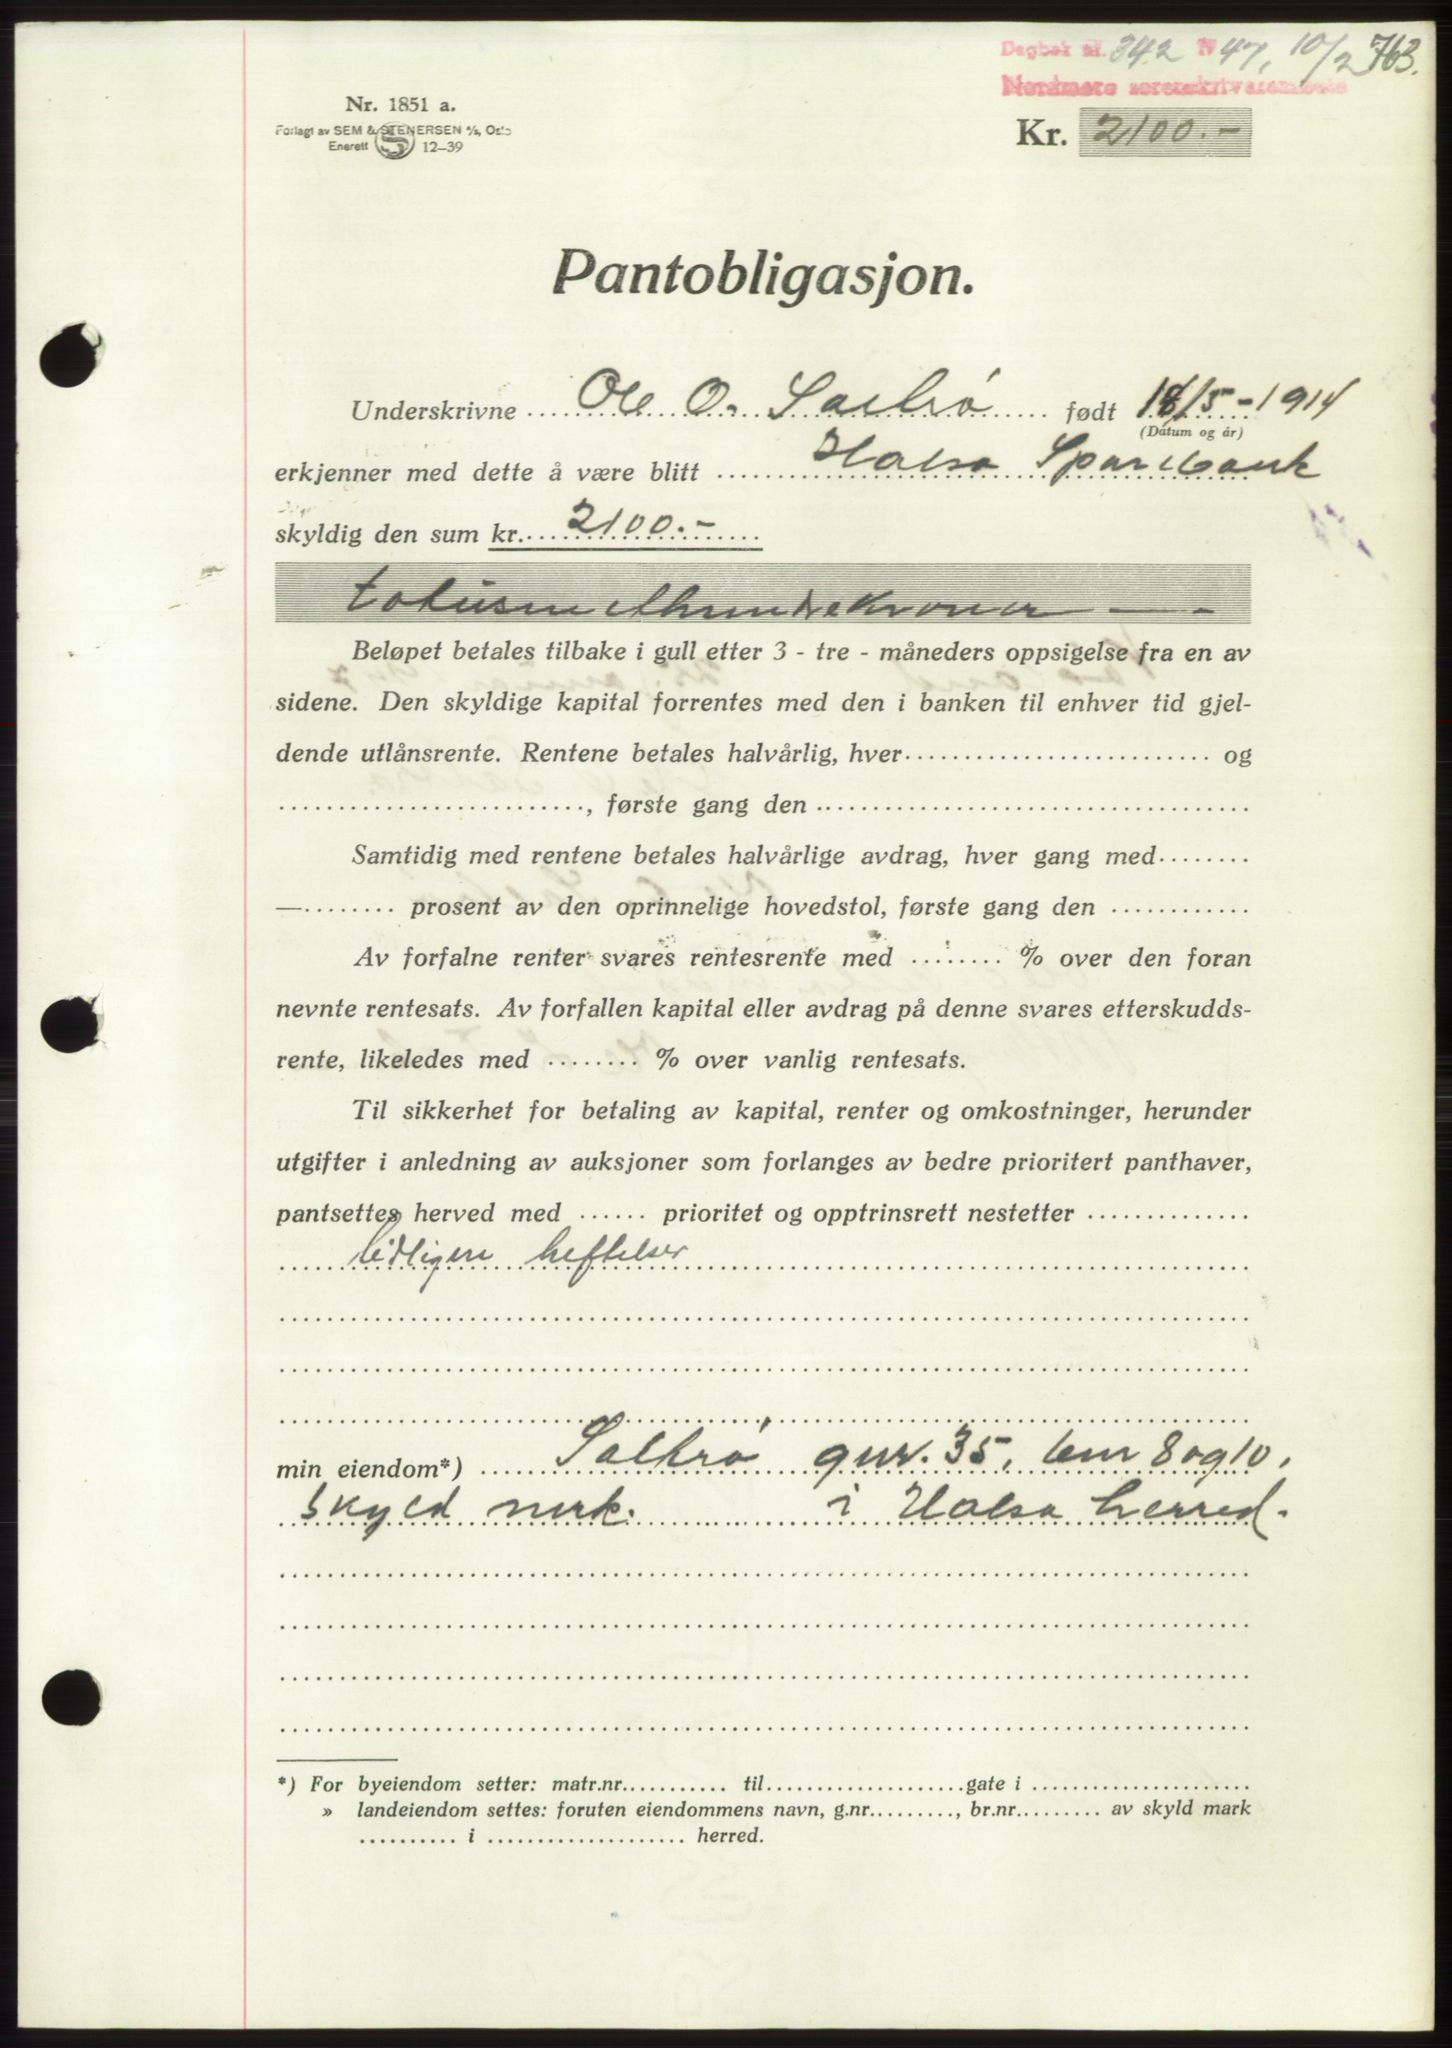 Dagbok nr. 342 19 47, 10/2 763.
Nordmøre sorenskriverembete
Nr. 1851 a.
Forlagt av SEM & STENERSEN A/S, Oslo
Enerett S 12-39
Kr. 2100.-
Pantobligasjon.
Underskrivne Ole O. Saltrø født 18/5-1914
(Datum og år)
erkjenner med dette å være blitt Halsa Sparebank
skyldig den sum kr. 2100.-
totusenetthundrekroner — -
Beløpet betales tilbake i gull etter 3 - tre - måneders oppsigelse fra en av
sidene. Den skyldige kapital forrentes med den i banken til enhver tid gjel-
dende utlånsrente. Rentene betales halvårlig, hver .......... og
.........., første gang den ..........
Samtidig med rentene betales halvårlige avdrag, hver gang med ..........
— .......... prosent av den oprinnelige hovedstol, første gang den ..........
Av forfalne renter svares rentesrente med .......... % over den foran
nevnte rentesats. Av forfallen kapital eller avdrag på denne svares etterskudds-
rente, likeledes med .......... % over vanlig rentesats.
Til sikkerhet for betaling av kapital, renter og omkostninger, herunder
utgifter i anledning av auksjoner som forlanges av bedre prioritert panthaver,
pantsettes herved med ...... prioritet og opptrinsrett nestetter ..........
tidligere heftelser
min eiendom*) Saltrø gnr. 35, bnr 8 og 10,
skyld mrk. i Halsa herred.
*) For byeiendom setter: matr.nr. .......... til .......... gate i ..........
» landeiendom settes: foruten eiendommens navn, g.nr. .........., br.nr. .......... av skyld mark
.......... i .......... herred.